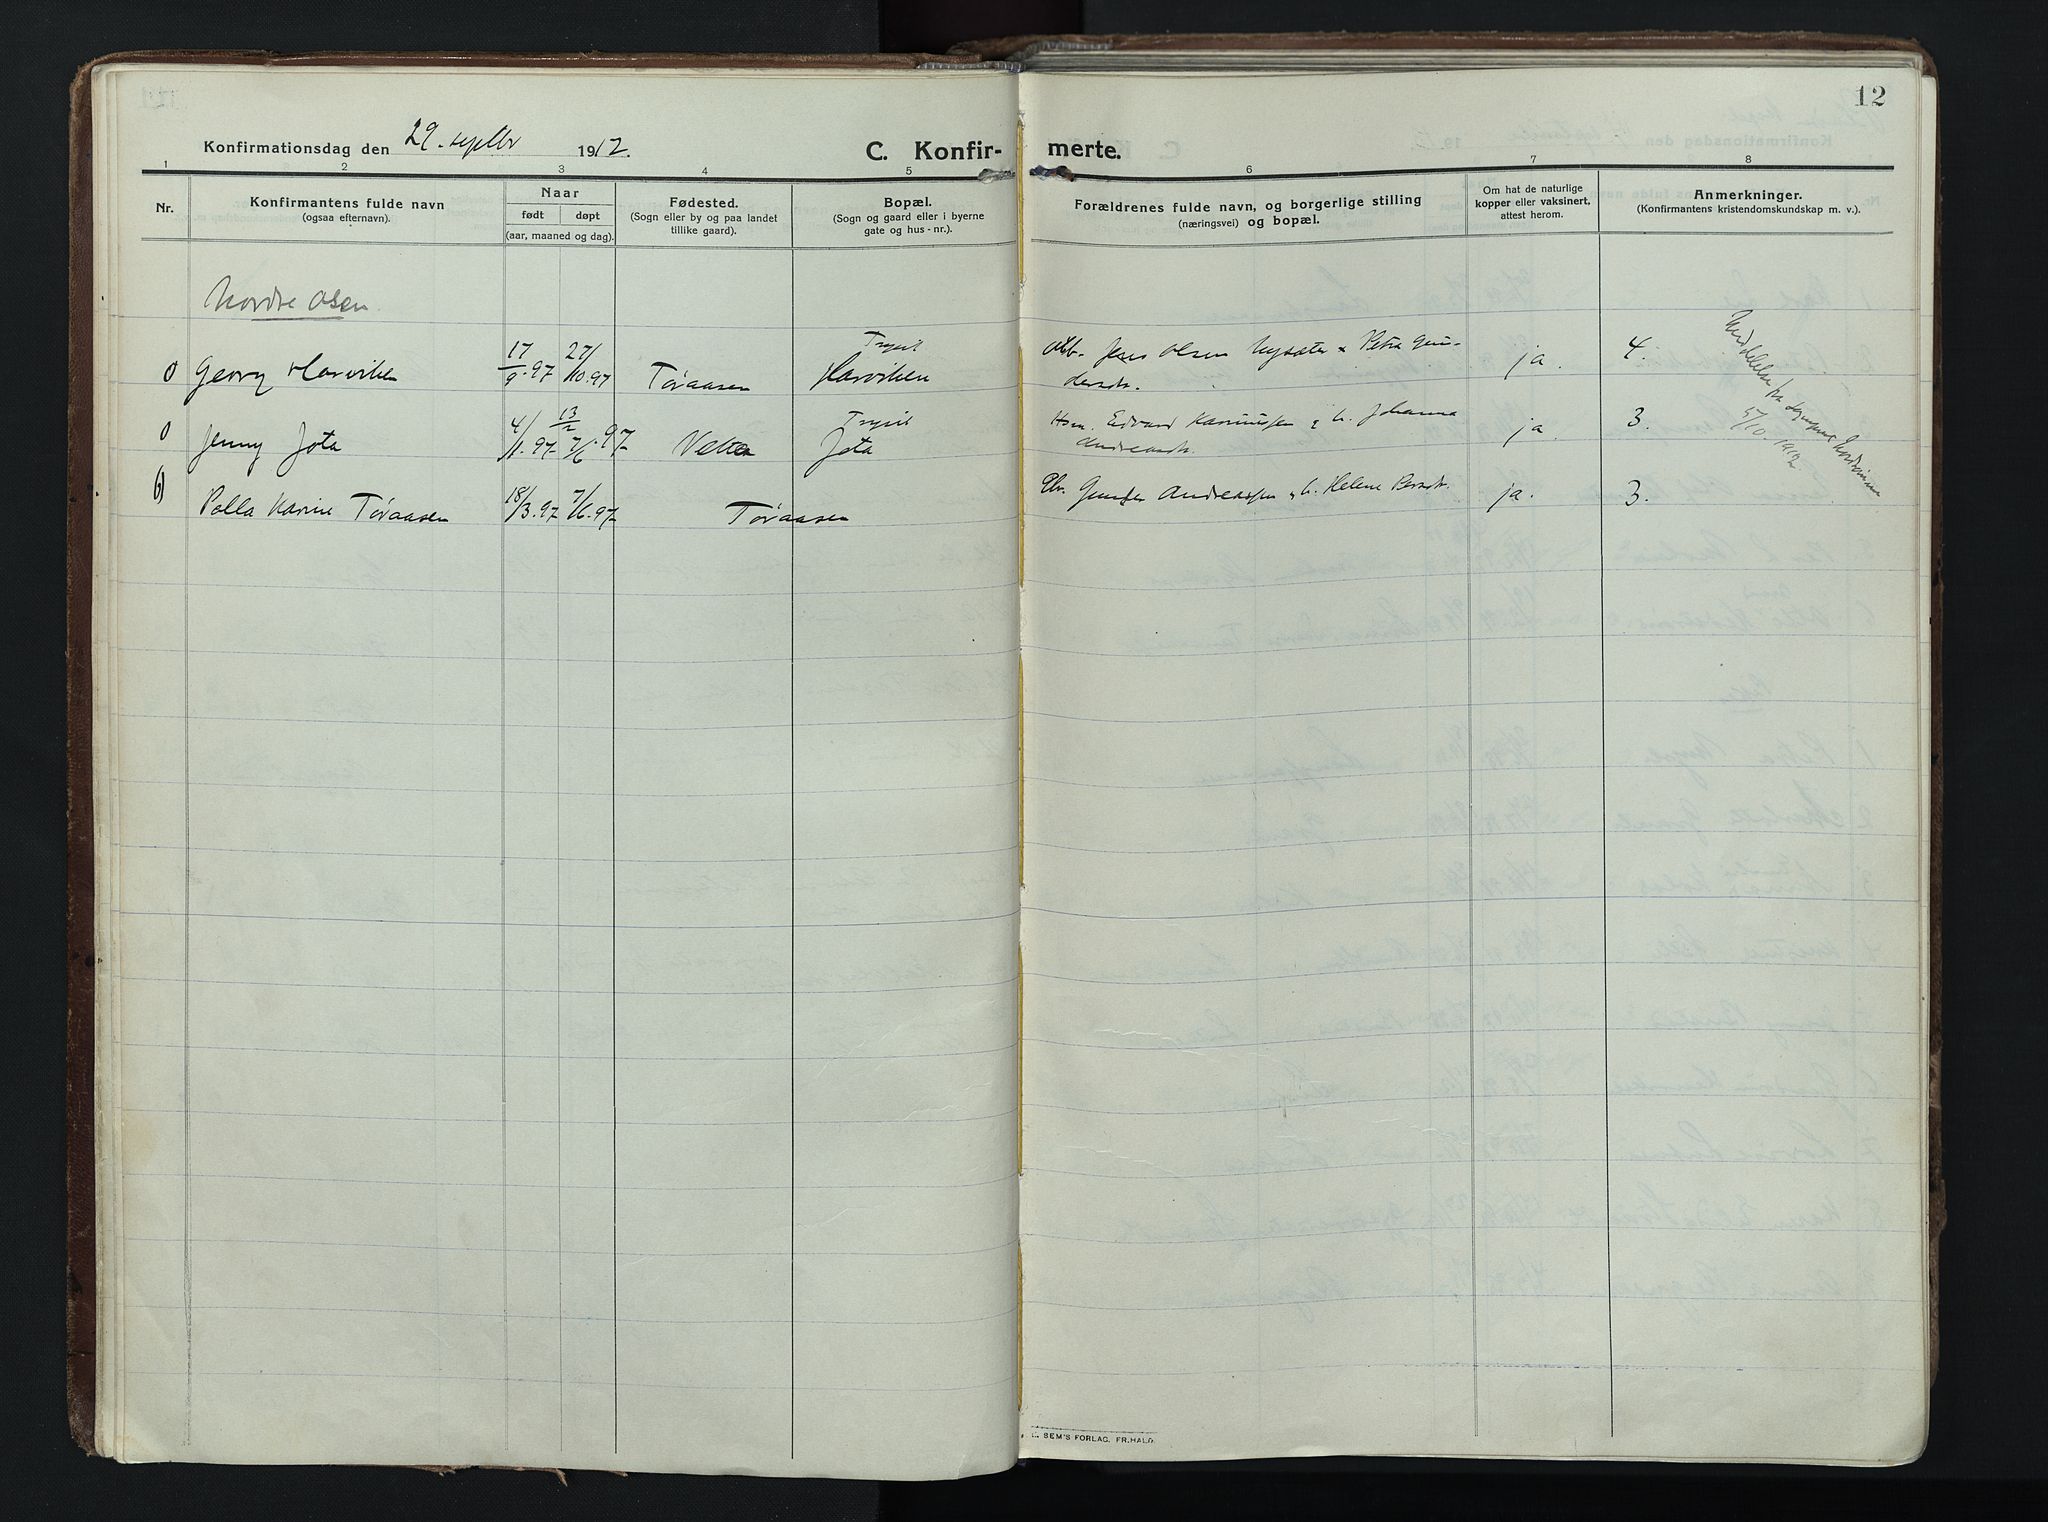 12
Konfirmationsdag den 29. septbr 1912.
C. Konfir- merte.
1 2 3 4 5 6 7 8
Nr.
Konfirmantens fulde navn
(ogsaa efternavn).
Naar
født døpt
(aar, maaned og dag).
Fødested.
(Sogn eller by og paa landet
tillike gaard).
Bopæl.
(Sogn og gaard eller i byerne
gate og hus-nr.).
Forældrenes fulde navn, og borgerlige stilling
(næringsvei) og bopæl.
Om hat de naturlige
kopper eller vaksinert,
attest herom.
Anmerkninger.
(Konfirmantens kristendomskundskap m. v.).
Nordre Osen
Trysil
17/9.97 27/10.97
Georg Harviken Tøraasen Harviken Jens Olsen Nysæter & Petra Gun-
dersdtr. ja. 4.
Trysil
Jenny Jota 4/1.97 13/2 7/6.97 Jota Edvard Rasmussen & h. Johanna
Andreasdtr. ja. 3.
Palla Karine Tøraasen 18/3.97 7/6.97 Tøraasen Andreassen & h. Helene Persdtr. ja. 3.
Meddelelse fra
5/10.1912.
SEM'S FORLAG, FR.HALD.